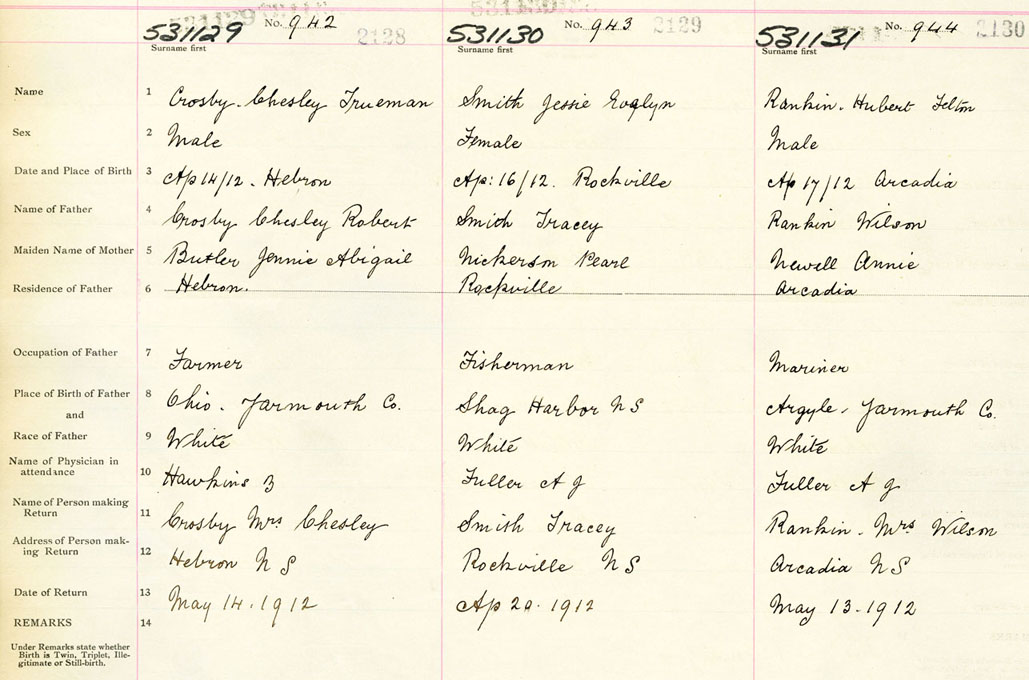 531129 No. 942 2128 531130 No. 943 2129 531131 No. 944 2130
Surname first Surname first Surname first
Name 1 Crosby. Chesley Trueman Smith Jessie Evelyn Rankin. Hubert Felton
Sex 2 Male Female Male
Date and Place of Birth 3 Ap 14/12. Hebron Ap: 16/12. Rockville Ap 17/12 Arcadia
Name of Father 4 Crosby Chesley Robert Smith Tracey Rankin Wilson
Maiden Name of Mother 5 Butler Jennie Abigail Nickerson Pearl Newell Annie
Residence of Father 6 Hebron. Rockville Arcadia
Occupation of Father 7 Farmer Fisherman Mariner
Place of Birth of Father 8 Ohio. Yarmouth Co. Shag Harbor N S Argyle, Yarmouth Co.
and
Race of Father 9 White White White
Name of Physician in
attendance 10 Hawkins Z Fuller A G Fuller A G
Name of Person making
Return 11 Crosby Mrs Chesley Smith Tracey Rankin. Mrs Wilson
Address of Person mak-
ing Return 12 Hebron N S Rockville N S Arcadia N S
Date of Return 13 May 14. 1912 Ap 20. 1912 May 13. 1912
REMARKS 14
Under Remarks state whether
Birth is Twin, Triplet, Ille-
gitimate or Still-birth.